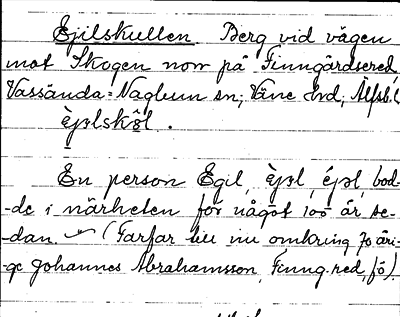 Ejilskullen. Berg vid vägen
mot Skogen norr på Finngärdsered,
Vassända=Naglum sn; Väne hrd; Älfsb. l
èjəlskŏ̀l .
En person Egil, èjəl, éjəl, bod-
-de i närheten för något 100 år se-
-dan. (Farfar till nu omkring 70 åri-
-ge Johannes Abrahamsson, Finng.red, fö).